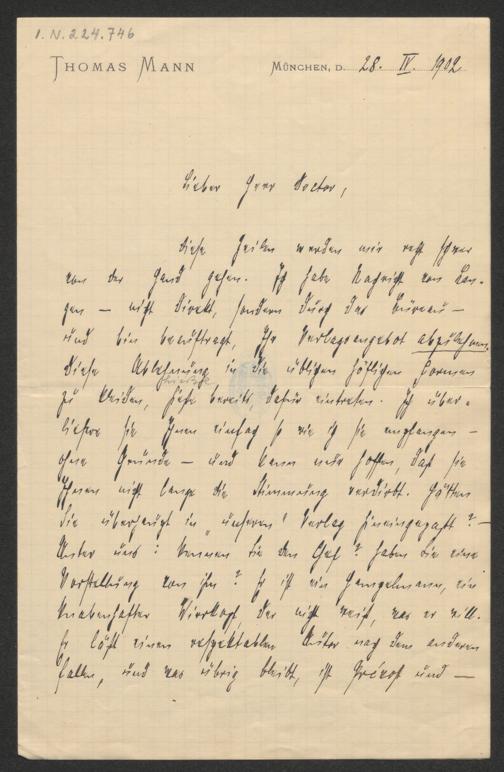 I.N. 224.746
THOMAS MANN MÜNCHEN, D. 28. IV. 1902
Lieber Herr Doctor,
diese Zeilen werden mir recht schwer
von der Hand gehen. Ich habe Nachricht von Lan-
gen – nicht direkt, sondern durch das Büreau –
und bin beauftragt, Ihr Verlagsangebot abzulehnen.
Diese Ablehnung in die üblichen höflichen Formen
zu kleiden, hieße bereits, dafür eintreten. Ich über-
liefere sie Ihnen einfach so wie ich sie empfangen –
ohne Gründe – und kann nur hoffen, daß sie
Ihnen nicht lange die Stimmung verdirbt. Hätten
Sie überhaupt in „unseren" Verlag hineingepaßt? –
Unter uns: kennen Sie den Chef? Haben Sie eine
Vorstellung von ihm? Er ist ein Hampelmann, ein
knabenhafter Wirrkopf, der nicht weiß, was er will.
Er läßt einen respektablen Autor nach dem anderen
fallen, und was übrig bleibt, ist Prévost und –